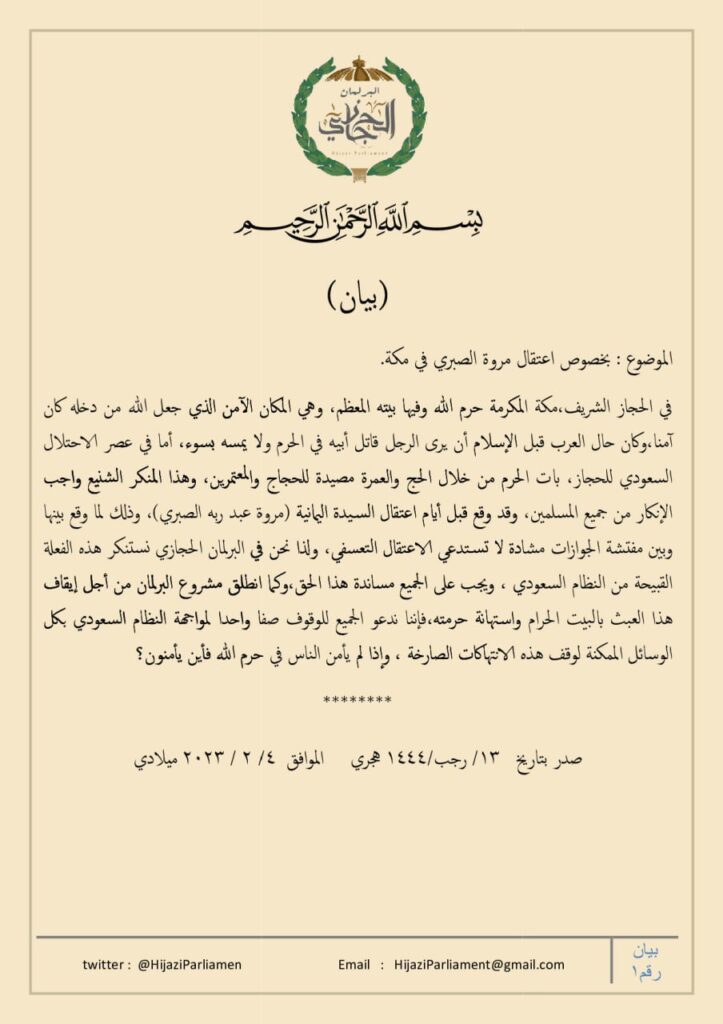 البرلمان
الحجازي
Hijazi Parliament
بِسْمِ ٱللَّهِ ٱلرَّحْمَٰنِ ٱلرَّحِيمِ
(بيان)
الموضوع : بخصوص اعتقال مروة الصبري في مكة.
في الحجاز الشريف،مكة المكرمة حرم الله وفيها بيته المعظم، وهي المكان الآمن الذي جعل الله من دخله كان
آمنا،وكان حال العرب قبل الإسلام أن يرى الرجل قاتل أبيه في الحرم ولا يمسه بسوء، أما في عصر الاحتلال
السعودي للحجاز، بات الحرم من خلال الحج والعمرة مصيدة للحجاج والمعتمرين، وهذا المنكر الشنيع واجب
الإنكار من جميع المسلمين، وقد وقع قبل أيام اعتقال السيدة اليمانية (مروة عبد ربه الصبري)، وذلك لما وقع بينها
وبين مفتشة الجوازات مشادة لا تستدعي الاعتقال التعسفي، ولذا نحن في البرلمان الحجازي نستنكر هذه الفعلة
القبيحة من النظام السعودي ، ويجب على الجميع مساندة هذا الحق،وكما انطلق مشروع البرلمان من أجل إيقاف
هذا العبث بالبيت الحرام واستهانة حرمته،فإننا ندعو الجميع للوقوف صفا واحدا لمواجهة النظام السعودي بكل
الوسائل الممكنة لوقف هذه الانتهاكات الصارخة ، وإذا لم يأمن الناس في حرم الله فأين يأمنون؟
********
صدر بتاريخ ١٣/ رجب/١٤٤٤ هجري الموافق ٤/ ٢ / ٢٠٢٣ ميلادي
بيان
رقم١
twitter : @HijaziParliamen Email : HijaziParliament@gmail.com